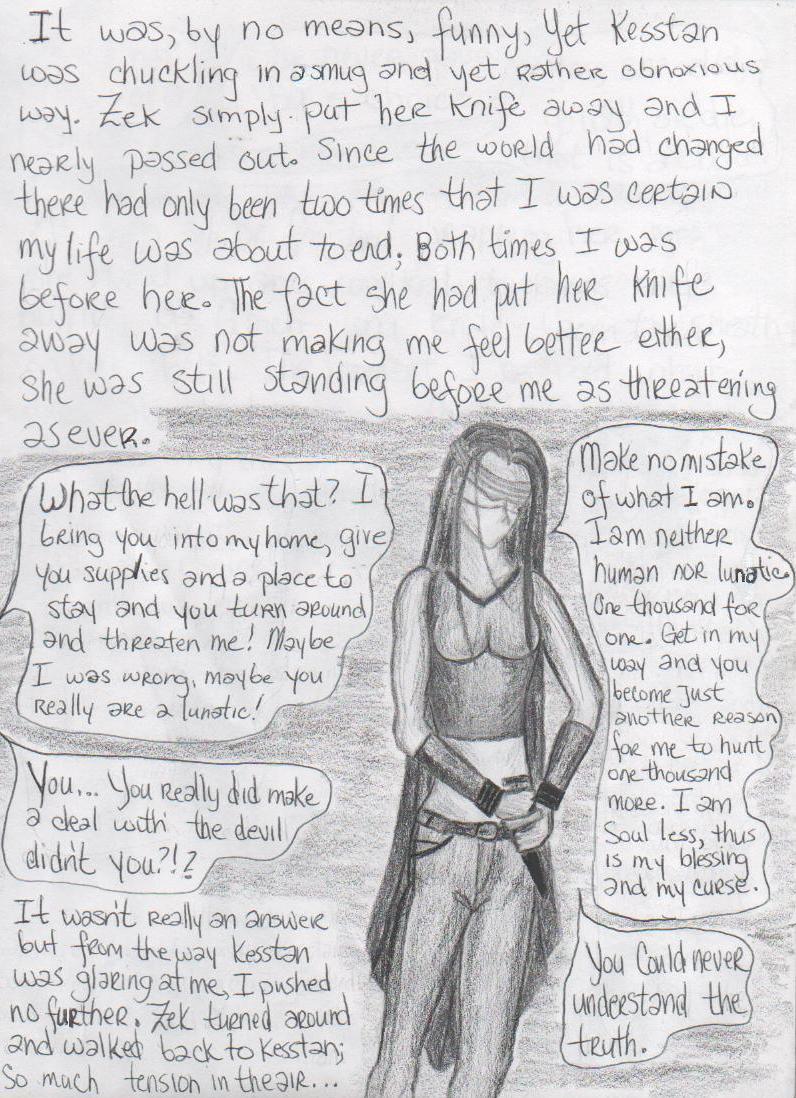 It was, by no means, funny, yet Kesstan
was chuckling in a smug and yet rather obnoxious
way. Zek simply put her knife away and I
nearly passed out. Since the world had changed
there had only been two times that I was certain
my life was about to end; Both times I was
before her. The fact she had put her knife
away was not making me feel better either,
she was still standing before me as threatening
as ever.
What the hell was that? I
bring you into my home, give
you supplies and a place to
stay and you turn around
and threaten me! Maybe
I was wrong, maybe you
really are a lunatic!
Make no mistake
of what I am.
I am neither
human nor lunatic.
One thousand for
one. Get in my
way and you
become just
another reason
for me to hunt
one thousand
more. I am
Soul less, thus
is my blessing
and my curse.
You... You really did make
a deal with the devil
didn't you?!?
You could never
understand the
truth.
It wasn't really an answer
but from the way Kesstan
was glaring at me, I pushed
no further. Zek turned around
and walked back to Kesstan;
So much tension in the air...